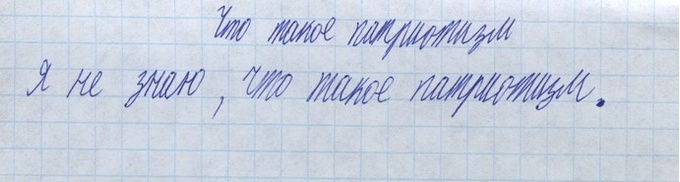 Что такое патриотизм
Я не знаю, что такое патриотизм.